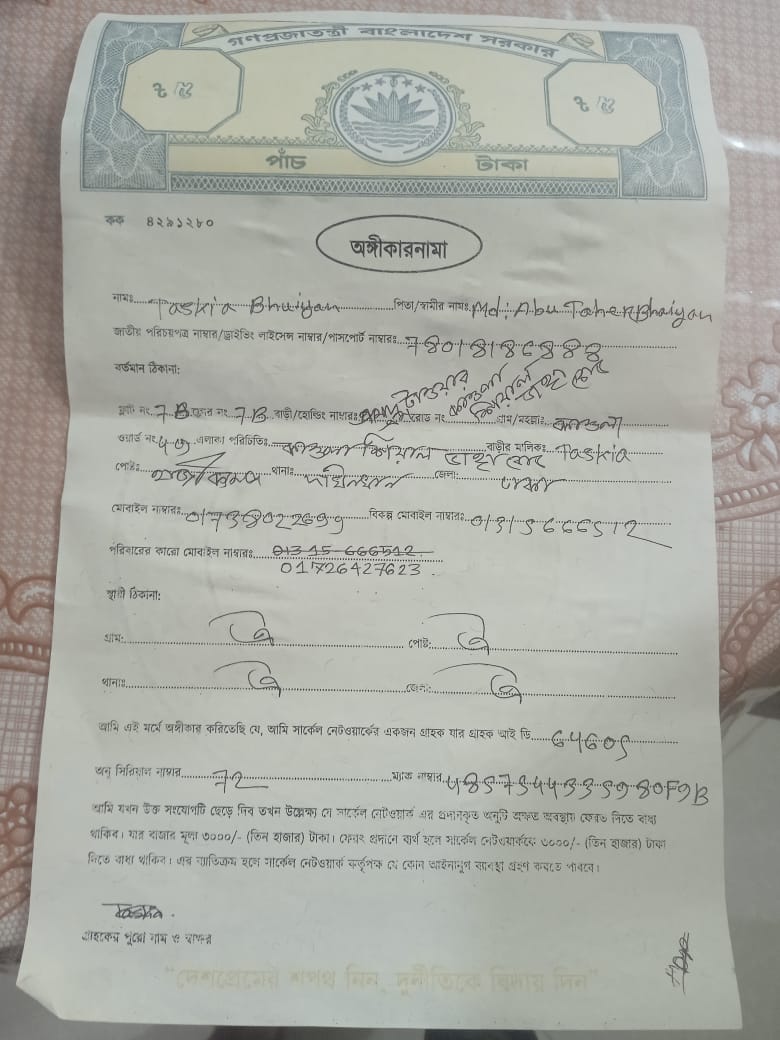 গণপ্রজাতন্ত্রী বাংলাদেশ সরকার
৳ ৫ ৳ ৫
পাঁচ টাকা
কক ৪২৯১২৮০
অঙ্গীকারনামা
নামঃ Taskia Bhuiyan পিতা/স্বামীর নামঃ Md: Abu Taher Bhaiyan
জাতীয় পরিচয়পত্র নাম্বার/ড্রাইভিং লাইসেন্স নাম্বার/পাসপোর্ট নাম্বারঃ 7801818688
বর্তমান ঠিকানা:
ফ্ল্যাট নং 7B ফ্লোর নং 7B বাড়ী/হোল্ডিং নাম্বারঃ রোড নং গ্রাম/মহল্লাঃ কাওলা
ওয়ার্ড নং এলাকা পরিচিতিঃ কাওলা শিয়াল ডাঙ্গা রোড বাড়ীর মালিকঃ Taskia
পোষ্টঃ থানাঃ জেলা: ঢাকা
মোবাইল নাম্বারঃ 01738022699 বিকল্প মোবাইল নাম্বারঃ 01315666512
পরিবারের কারো মোবাইল নাম্বারঃ 01315-666512
01726427623
স্থায়ী ঠিকানা:
গ্রাম: ঐ পোষ্ট: ঐ
থানাঃ ঐ জেলা: ঐ
আমি এই মর্মে অঙ্গীকার করিতেছি যে, আমি সার্কেল নেটওয়ার্কের একজন গ্রাহক যার গ্রাহক আই ডি 64605
অনু সিরিয়াল নাম্বার 72 ম্যাক নাম্বার 4857544335980F9B
আমি যখন উক্ত সংযোগটি ছেড়ে দিব তখন উল্লেক্ষ্য যে সার্কেল নেটওয়ার্ক এর প্রদানকৃত অনুটি অক্ষত অবস্থায় ফেরত দিতে বাধ্য
থাকিব। যার বাজার মূল্য ৩০০০/- (তিন হাজার) টাকা। ফেরৎ প্রদানে ব্যর্থ হলে সার্কেল নেটওয়ার্ককে ৩০০০/- (তিন হাজার) টাকা
দিতে বাধ্য থাকিব। এর ব্যতিক্রম হলে সার্কেল নেটওয়ার্ক কর্তৃপক্ষ যে কোন আইনানুগ ব্যবস্থা গ্রহণ করতে পারবে।
Taskia
গ্রাহকের পুরো নাম ও স্বাক্ষর
"দেশপ্রেমের শপথ নিন, দুর্নীতিকে বিদায় দিন"